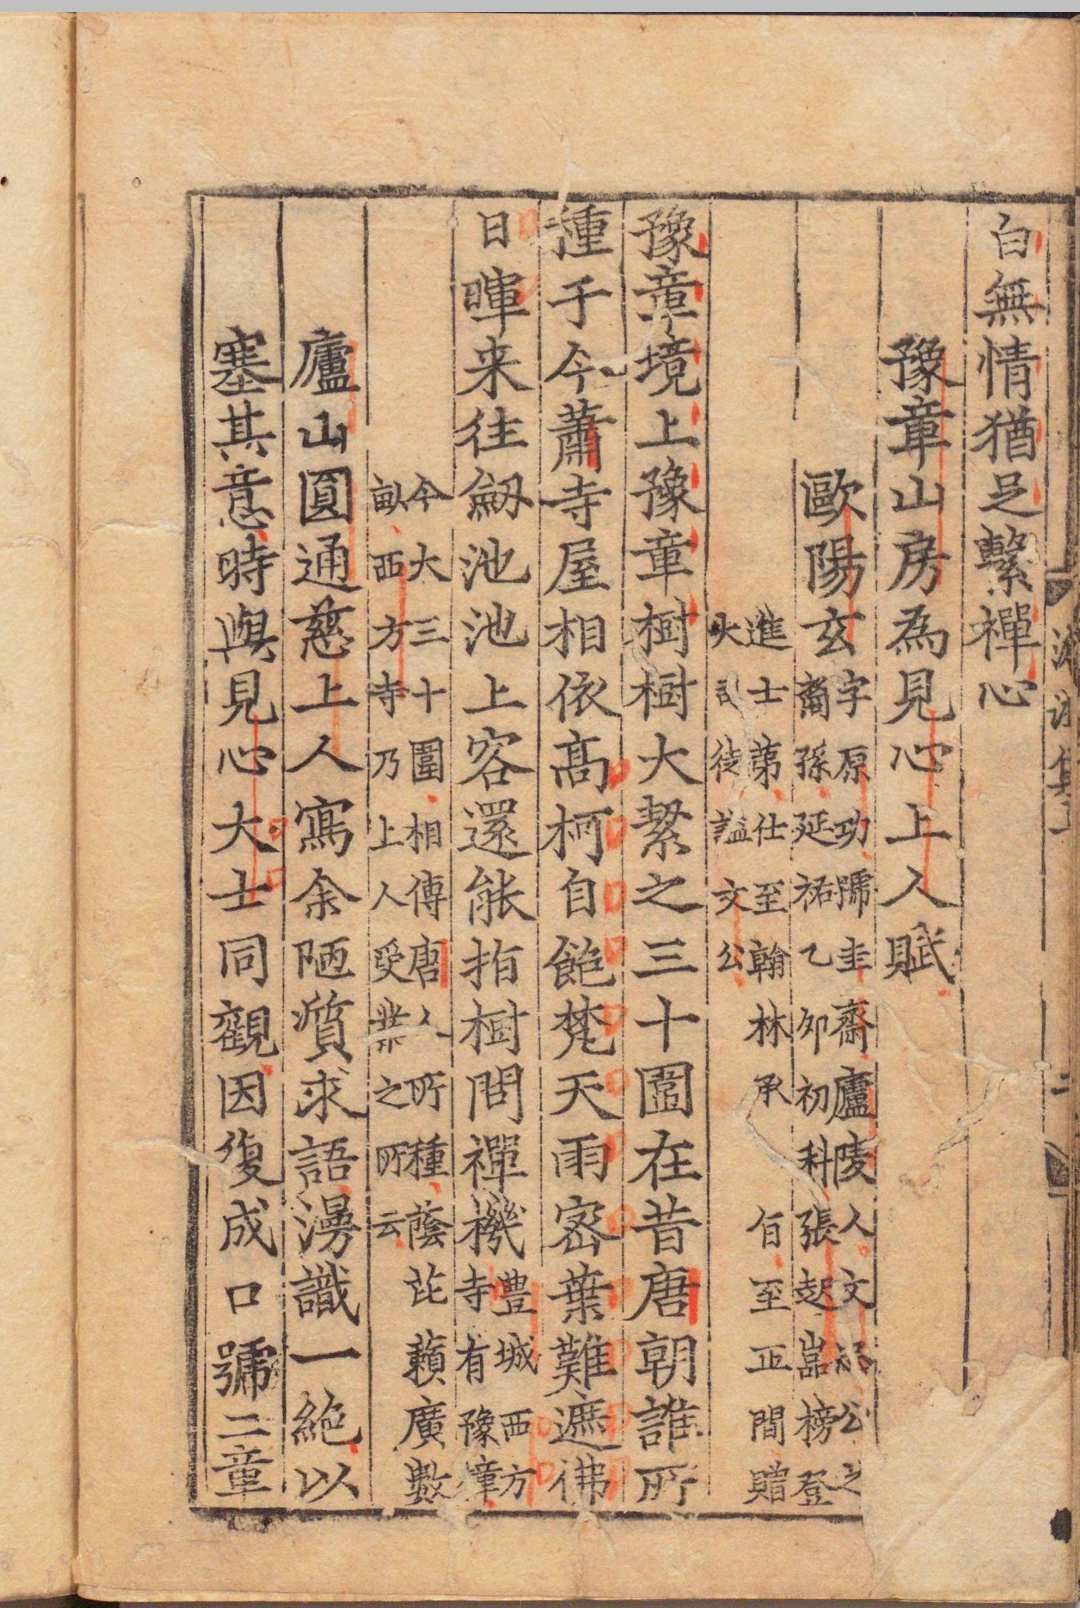 白無情猶足繫禪心
豫章山房為見心上人賦
歐陽玄字原功號圭齋廬陵人文公之
裔孫延祐乙卯初科張起巖榜登
進士第仕至翰林承旨至正間贈
大司徒謚文公
豫章境上豫章樹樹大絜之三十圍在昔唐朝誰所
種于今蕭寺屋相依高柯自飽梵天雨密葉難遮佛
日暉来往劒池池上客還能指樹問禪機豊城西方
寺有豫章
今大三十圍相傳唐人所種蔭芘蘔廣數
畝西方寺乃上人受業之所云
廬山圓通慈上人寫余陋質求語漫識一絶以
塞其意時與見心大士同觀因復成口號二章